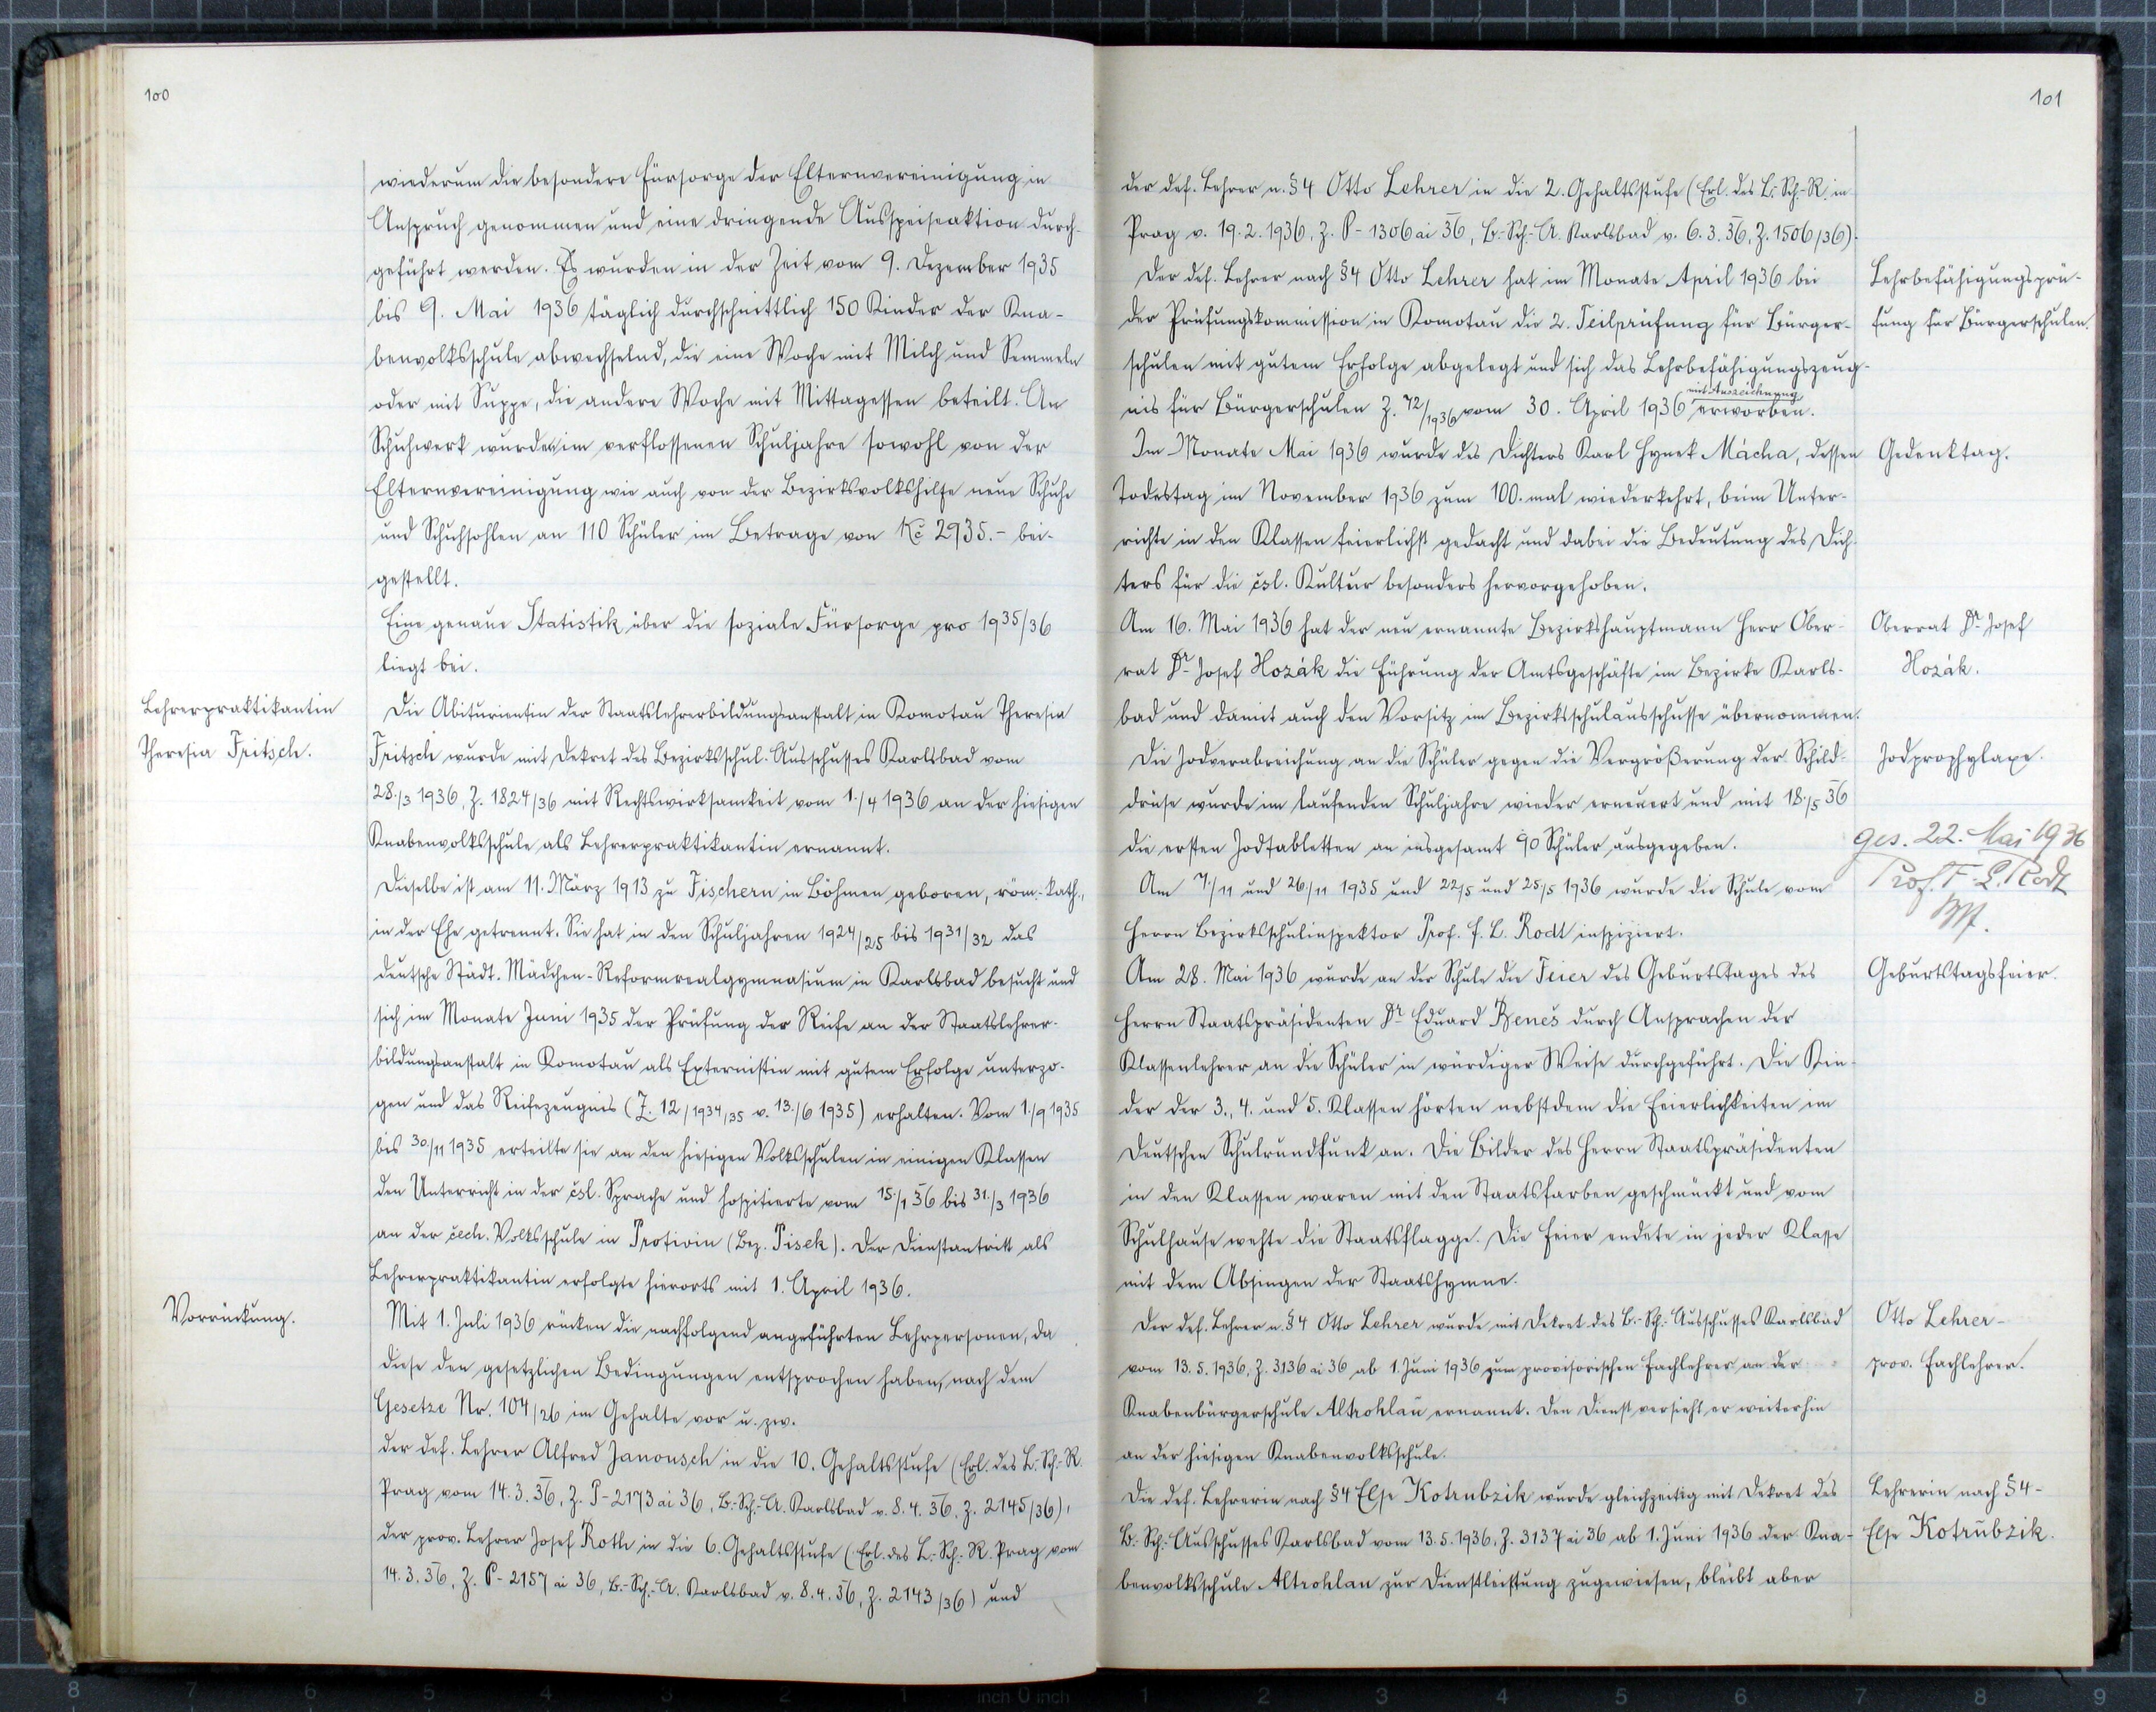 100
wiederum die besondere Fürsorge der Elternvereinigung in
Anspruch genommen und eine dringende Ausspeiseaktion durch-
geführt werden. Es wurden in der Zeit vom 9. Dezember 1935
bis 9. Mai 1936 täglich durchschnittlich 150 Kinder der Kna-
benvolksschule abwechselnd, die eine Woche mit Milch und Semmeln
oder mit Suppe, die andere Woche mit Mittagessen beteilt. An
Schuhwerk wurden im verflossenen Schuljahre sowohl von der
Elternvereinigung wie auch von der Bezirksvolkshilfe neue Schuhe
und Schuhsohlen an 110 Schüler im Betrage von Kč 2935.- bei-
gestellt.
Eine genaue Statistik über die soziale Fürsorge pro 1935/36
liegt bei.
Lehrerpraktikantin
Theresia Fritsch.
Die Abiturientin der Staatslehrerbildungsanstalt in Komotau Theresia
Fritsch wurde mit Dekret des Bezirksschul-Ausschusses Karlsbad vom
28./3 1936, Z. 1824/36 mit Rechtswirksamkeit vom 1./4 1936 an der hiesigen
Knabenvolksschule als Lehrerpraktikantin ernannt.
Dieselbe ist am 11. März 1913 zu Fischern in Böhmen geboren, röm.-kath.,
in der Ehe getrennt. Sie hat in den Schuljahren 1924/25 bis 1931/32 das
deutsche Städt. Mädchen-Reformrealgymnasium in Karlsbad besucht und
sich im Monate Juni 1935 der Prüfung der Reife an der Staatslehrer-
bildungsanstalt in Komotau als Externistin mit gutem Erfolge unterzo-
gen und das Reifezeugnis (Z. 12/1934/35 v. 13./6 1935) erhalten. Vom 1./9 1935
bis 30./11 1935 erteilte sie an den hiesigen Volksschulen in einigen Klassen
den Unterricht in der čsl. Sprache und hospitierte vom 15./1 36 bis 31./3 1936
an der čech. Volksschule in Protivin (Bez. Pisek). Der Dienstantritt als
Lehrerpraktikantin erfolgte hierorts mit 1. April 1936.
Vorrückung.
Mit 1. Juli 1936 rücken die nachfolgend angeführten Lehrpersonen, da
diese den gesetzlichen Bedingungen entsprochen haben, nach dem
Gesetze Nr. 104/26 im Gehalte vor u. zw.
der def. Lehrer Alfred Janousch in die 10. Gehaltsstufe (Erl. des L.-Sch.-R.
Prag vom 14.3.36, Z. P-2173 ai 36, B.-Sch.-A. Karlsbad v. 8.4.36, Z. 2145/36),
der prov. Lehrer Josef Roth in die 6. Gehaltsstufe (Erl. des L.-Sch.-R. Prag vom
14.3.36, Z. P-2157 ai 36, B.-Sch.-A. Karlsbad v. 8.4.36, Z. 2143/36) und
101
der def. Lehrer n. §4 Otto Lehrer in die 2. Gehaltsstufe (Erl. des L.-Sch.-R. in
Prag v. 19.2.1936, Z. P-1306 ai 36, B.-Sch.-A. Karlsbad v. 6.3.36, Z. 1506/36).
Der def. Lehrer nach §4 Otto Lehrer hat im Monate April 1936 bei
der Prüfungskommission in Komotau die 2. Teilprüfung für Bürger-
schulen mit gutem Erfolge abgelegt und sich das Lehrbefähigungszeug-
mit Auszeichnung
nis für Bürgerschulen Z. 72/1936 vom 30. April 1936 erworben.
Lehrbefähigungsprü-
fung für Bürgerschulen.
Im Monate Mai 1936 wurde des Dichters Karl Hynek Mácha, dessen
Todestag im November 1936 zum 100. mal wiederkehrt, beim Unter-
richte in den Klassen feierlichst gedacht und dabei die Bedeutung des Dich-
ters für die čsl. Kultur besonders hervorgehoben.
Gedenktag.
Am 16. Mai 1936 hat der neu ernannte Bezirkshauptmann Herr Ober-
rat Dr. Josef Hozák die Führung der Amtsgeschäfte im Bezirke Karls-
bad und damit auch den Vorsitz im Bezirksschulausschusse übernommen.
Oberrat Dr. Josef
Hozák.
Die Jodverabreichung an die Schüler gegen die Vergrößerung der Schild-
drüse wurde im laufenden Schuljahre wieder erneuert und mit 18./5 36
die ersten Jodtabletten an insgesamt 90 Schüler ausgegeben.
Jodprophylaxe.
Am 7./11 und 26/11 1935 und 22/5 und 25/5 1936 wurde die Schule vom
Herrn Bezirksschulinspektor Prof. F. L. Rodt inspiziert.
ges. 22. Mai 1936
Prof. F. L. Rodt
Am 28. Mai 1936 wurde an der Schule die Feier des Geburtstages des
Herrn Staatspräsidenten Dr. Eduard Beneš durch Ansprachen der
Klassenlehrer an die Schüler in würdiger Weise durchgeführt. Die Kin-
der der 3., 4. und 5. Klassen hörten nebstdem die Feierlichkeiten im
Deutschen Schulrundfunk an. Die Bilder des Herrn Staatspräsidenten
in den Klassen waren mit den Staatsfarben geschmückt und vom
Schulhause wehte die Staatsflagge. Die Feier endete in jeder Klasse
mit dem Absingen der Staatshymne.
Geburtstagsfeier.
Der def. Lehrer n. §4 Otto Lehrer wurde mit Dekret des B.-Sch.-Ausschusses Karlsbad
vom 13.5.1936, Z. 3136 ai 36 ab 1. Juni 1936 zum provisorischen Fachlehrer an der
Knabenbürgerschule Altrohlau ernannt. Den Dienst versieht er weiterhin
an der hiesigen Knabenvolksschule.
Otto Lehrer-
prov. Fachlehrer.
Die def. Lehrerin nach §4 Else Kotrubzik wurde gleichzeitig mit Dekret des
B.-Sch.-Ausschusses Karlsbad vom 13.5.1936, Z. 3137 ai 36 ab 1. Juni 1936 der Kna-
benvolksschule Altrohlau zur Dienstleistung zugewiesen, bleibt aber
Lehrerin nach §4-
Else Kotrubzik.
8 7 6 5 4 3 2 1 inch 0 inch 1 2 3 4 5 6 7 8 9